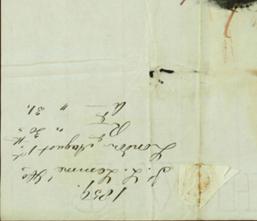 1859.
J. L. Lemme
London August 1st
Rd " 30
Ad " 31.